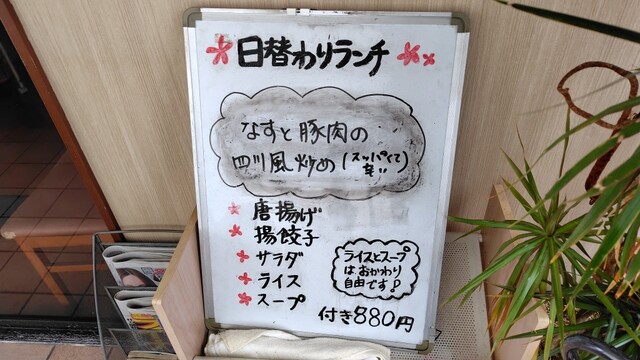 日替わりランチ
なすと豚肉の
四川風炒め(スッパくて辛い)
唐揚げ
揚餃子
サラダ
ライス
スープ
ライスとスープ
はおかわり
自由です!
付き880円